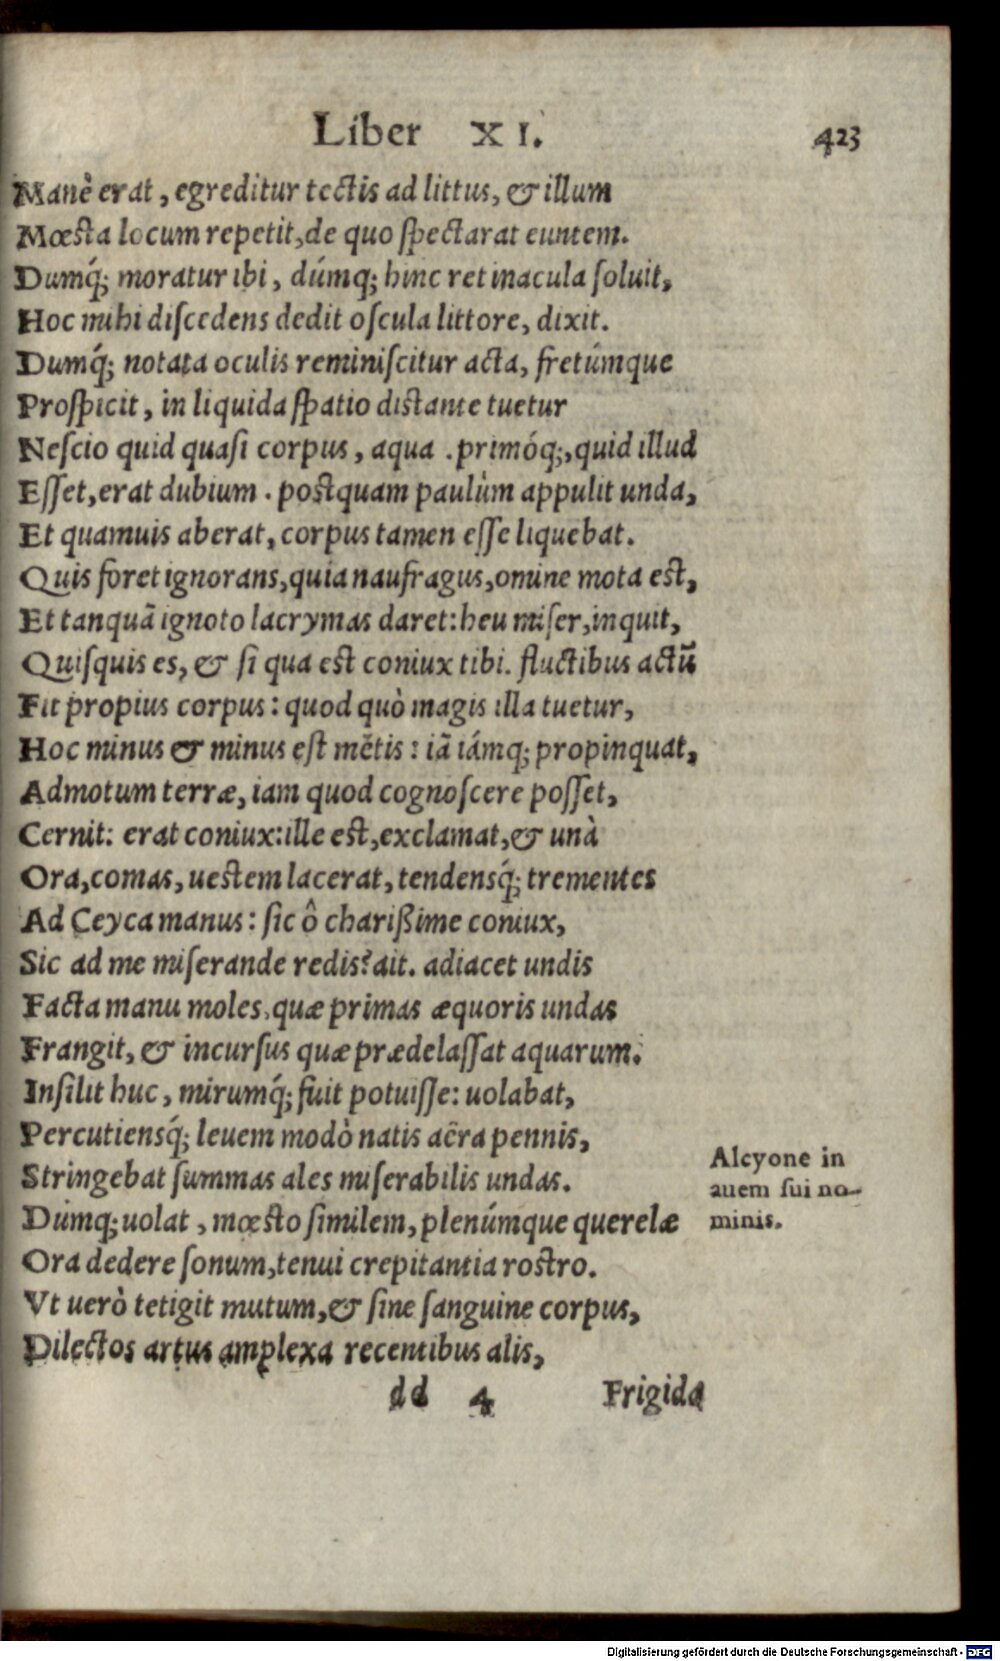 Liber XI. 423
Manè erat, egreditur tectis ad littus, & illum
Mœsta locum repetit, de quo spectarat euntem.
Dumq́; moratur ibi, dúmq; hinc retinacula soluit,
Hoc mihi discedens dedit oscula littore, dixit.
Dumq́; notata oculis reminiscitur acta, fretúmque
Prospicit, in liquida spatio distante tuetur
Nescio quid quasi corpus, aqua. primóq;, quid illud
Esset, erat dubium. postquam paulùm appulit unda,
Et quamuis aberat, corpus tamen esse liquebat.
Quis foret ignorans, quia naufragus, omine mota est,
Et tanquã ignoto lacrymas daret: heu miser, inquit,
Quisquis es, & si qua est coniux tibi. fluctibus actũ
Fit propius corpus: quod quò magis illa tuetur,
Hoc minus & minus est mẽtis: iã iámq; propinquat,
Admotum terræ, iam quod cognoscere posset,
Cernit: erat coniux: ille est, exclamat, & unà
Ora, comas, uestem lacerat, tendensq́; trementes
Ad Ceyca manus: sic ô charißime coniux,
Sic ad me miserande redis? ait. adiacet undis
Facta manu moles, quæ primas æquoris undas
Frangit, & incursus quæ prædelassat aquarum.
Insilit huc, mirumq́; fuit potuisse: uolabat,
Percutiensq́; leuem modò natis aëra pennis,
Stringebat summas ales miserabilis undas.
Dumq; uolat, mœsto similem, plenúmque querelæ
Ora dedere sonum, tenui crepitantia rostro.
Vt uerò tetigit mutum, & sine sanguine corpus,
Dilectos artus amplexa recentibus alis,
dd 4 Frigida
Alcyone in
auem sui no-
minis.
Digitalisierung gefördert durch die Deutsche Forschungsgemeinschaft - DFG